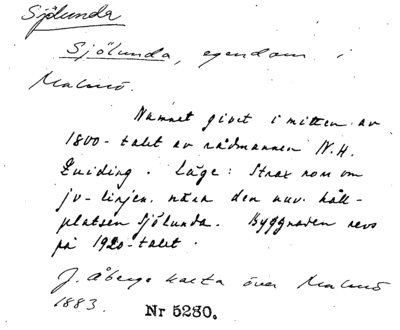 Sjölunda
Sjölunda, egendom i
Malmö.
Namnet givet i mitten av
1800-talet av rådmannen N.H.
Quiding. Läge: Strax norr om
jv-linjen, nära den nuv. håll-
platsen Sjölunda. Byggnaden revs
på 1920-talet.
J. Åbergs karta över Malmö
1883.
Nr 5230.